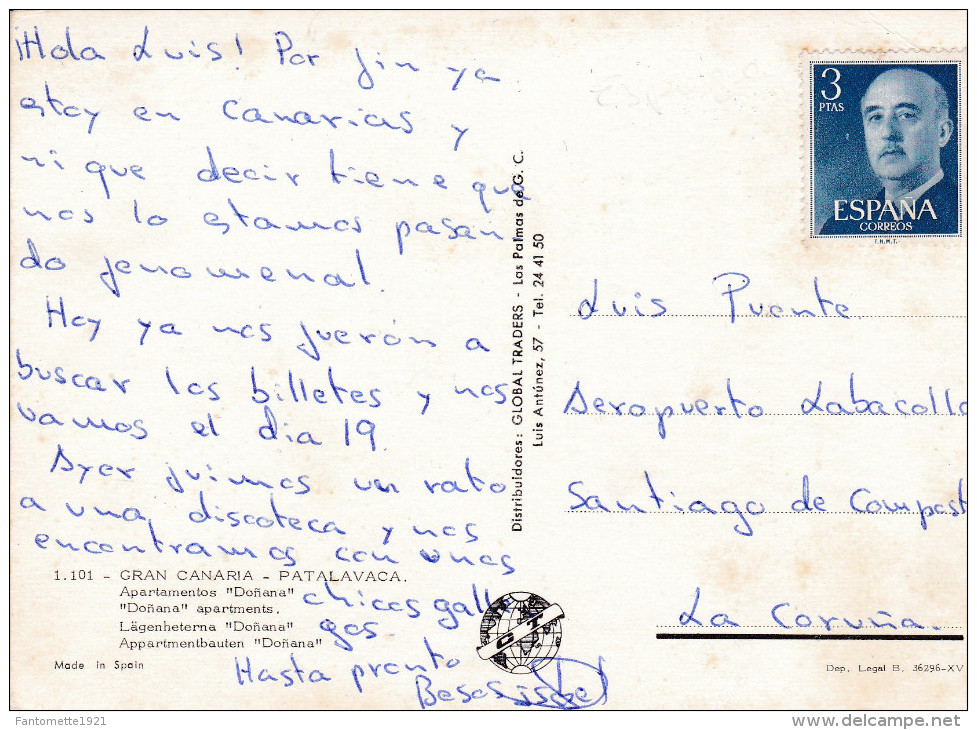 ¡Hola Luis! Por fin ya
estoy en Canarias y
ni que decir tiene que
nos lo estamos pasan
do fenomenal.
Hoy ya nos fuerón a
buscar los billetes y nos
vamos el dia 19.
Ayer fuimos un rato
a una discoteca y nos
encontramos con unos
chicos galle
gos.
Hasta pronto
Besos
1.101 - GRAN CANARIA - PATALAVACA.
Apartamentos "Doñana"
"Doñana" apartments.
Lägenheterna "Doñana"
Appartmentbauten "Doñana"
Made in Spain
Distribuidores: GLOBAL TRADERS - Las Palmas de G. C.
Luis Antúnez, 57 - Tel. 24 41 50
GT
3
PTAS
ESPAÑA
CORREOS
F.N.M.T.
Luis Puente.
Aeropuerto Labacolla
Santiago de Compost
La Coruña.
Dep. Legal B. 36296-XV
Fantomette1921
www.delcampe.net